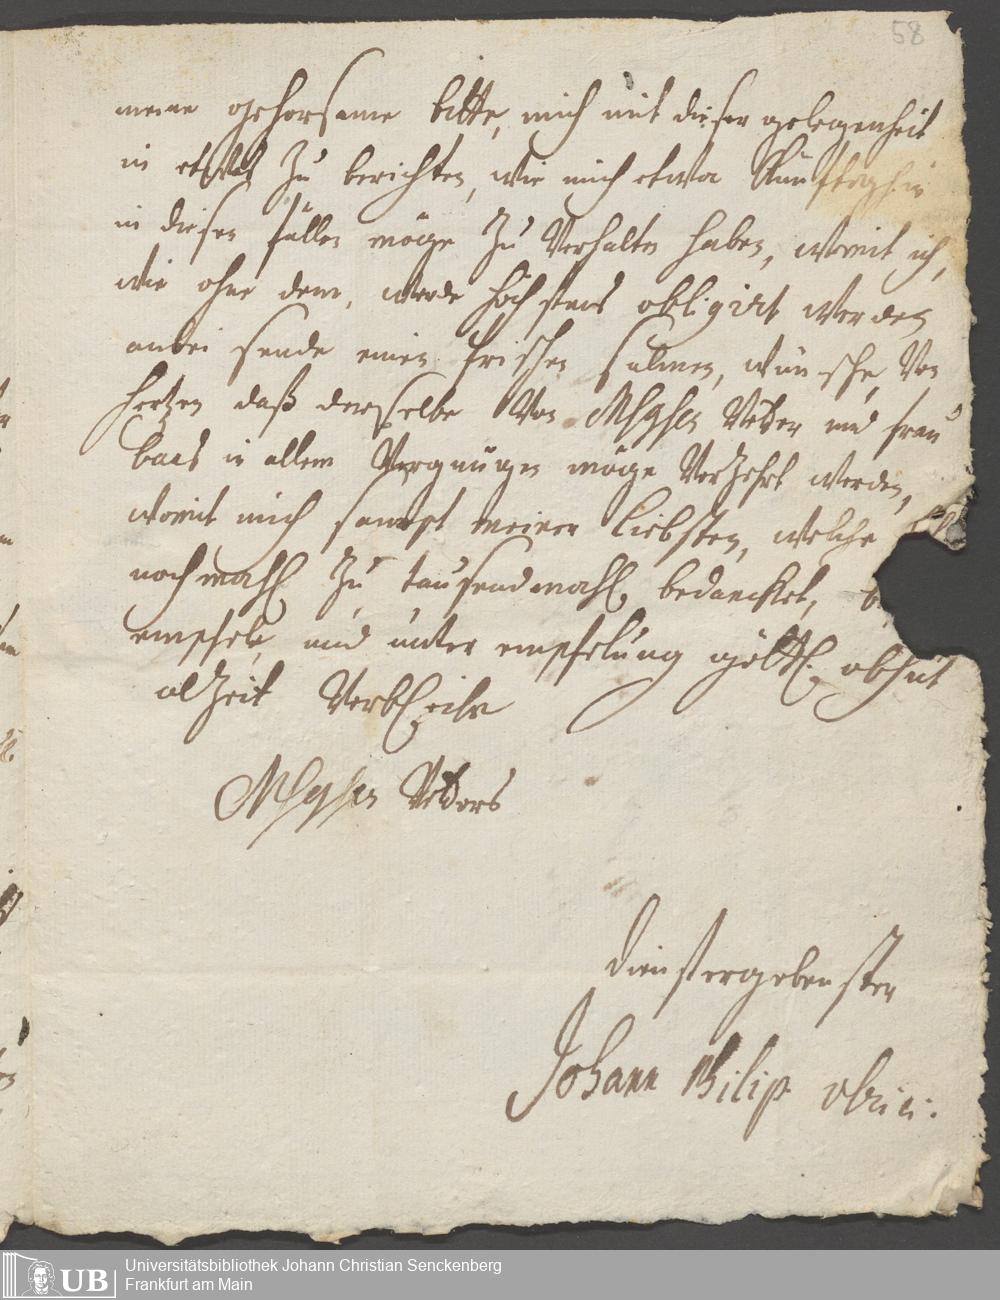 58
meine gehorsame bitte, mich mit dieser gelegenheit
in etwas zu berichten, wie mich etwa künftighin
in diesen fällen möge zu Verhalten haben, womit ich,
wie ohne dem, werde höchstens obligirt werden
anbei sende einen frischen salmen, wünsche, Von
hertzen daß derselbe Von MhghEn Vetter und frau
baes in allem Vergnügen möge Verzehrt werden,
womit mich sampt meiner liebsten, welche
nochmahl zu tausendmahl bedancket,
empfele, und unter empfelung göttl. obhut
alzeit Verbleibe
MhghEn Vetters
dienstergebenster
Johann Philip
Universitätsbibliothek Johann Christian Senckenberg
Frankfurt am Main
UB